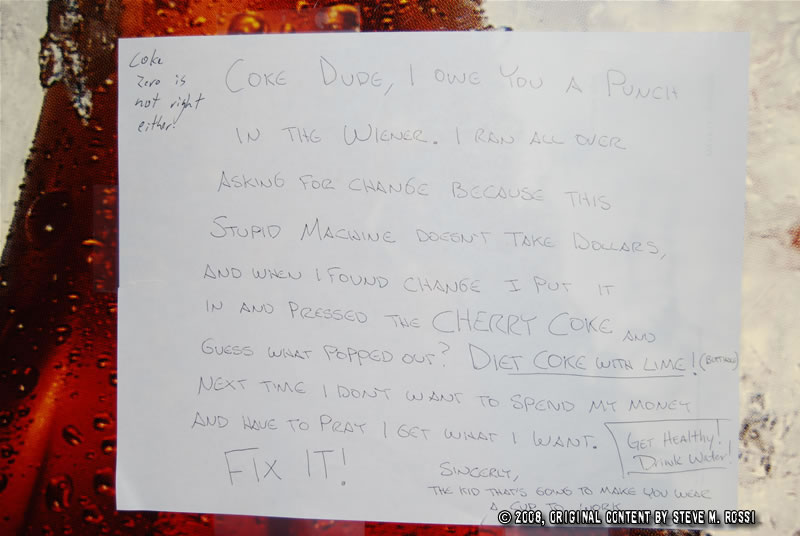 Coke
Zero is
not right
either!
COKE DUDE, I OWE YOU A PUNCH
IN THE WIENER. I RAN ALL OVER
ASKING FOR CHANGE BECAUSE THIS
STUPID MACHINE DOESN'T TAKE DOLLARS,
AND WHEN I FOUND CHANGE I PUT IT
IN AND PRESSED THE CHERRY COKE AND
GUESS WHAT POPPED OUT? DIET COKE WITH LIME!
NEXT TIME I DON'T WANT TO SPEND MY MONEY
AND HAVE TO PRAY I GET WHAT I WANT.
GET HEALTHY!
Drink Water!
FIX IT!
SINCERLY,
THE KID THAT'S GOING TO MAKE YOU WEAR
A CUP TO WORK
© 2008, ORIGINAL CONTENT BY STEVE M. ROSSI